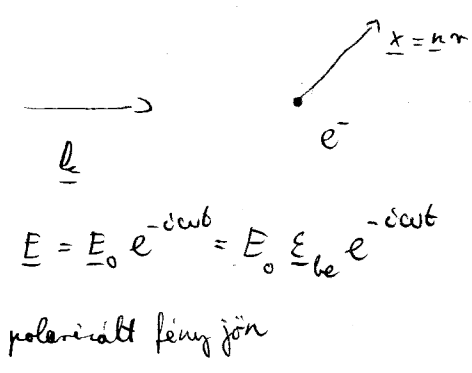 x = n r
e⁻
k
E = E₀ e^{-iωt} = E₀ ε_{be} e^{-iωt}
polarizált fény jön